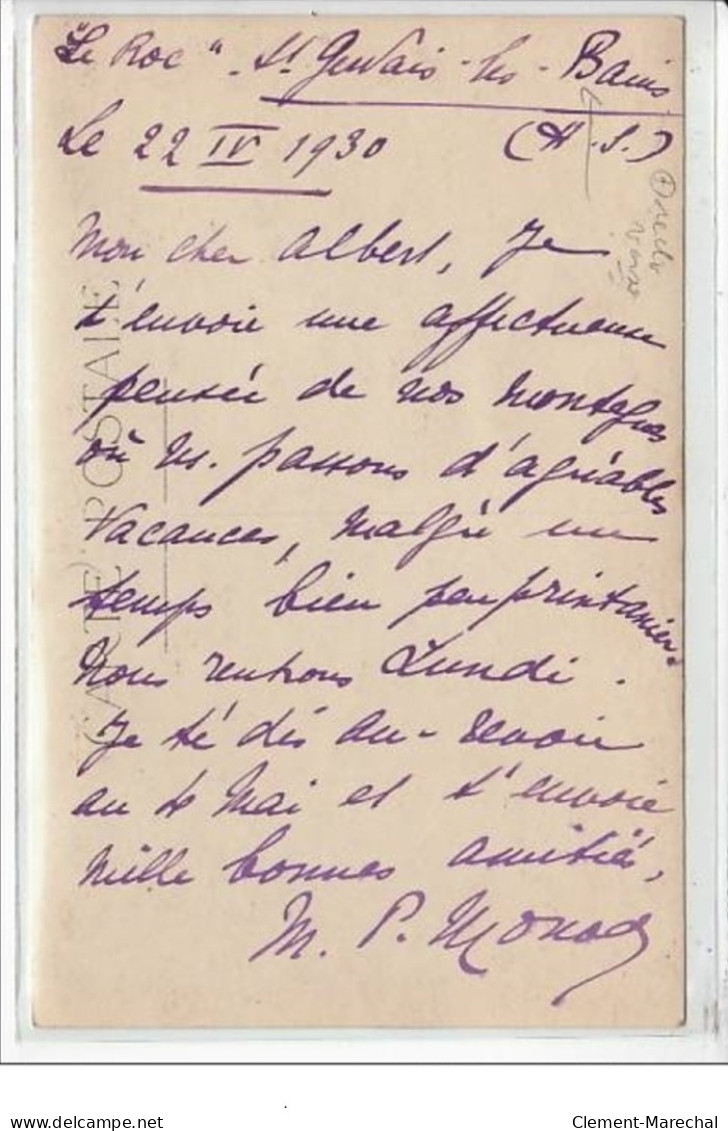 "Le Roc". St Gervais-les-Bains
Le 22 IV 1930 (H.S.)
Mon cher Albert, Je
t'envoie une affectueuse
pensée de nos montagnes
où ns. passons d'agréables
vacances, malgré un
temps bien peu printanier.
Nous rentrons Lundi.
Je te dis au-revoir
au 4 Mai et t'envoie
mille bonnes amitiés,
M. P. Monod
CARTE POSTALE
Clement-Marechal